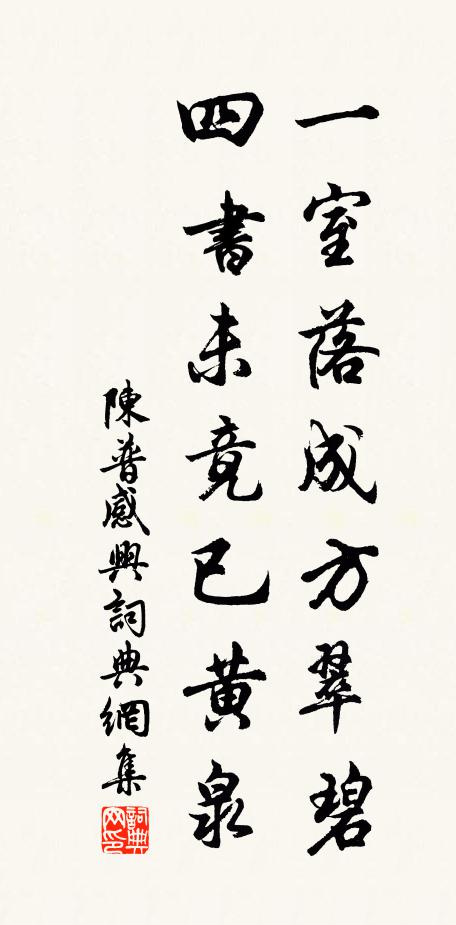 一室落成方翠碧
四書未竟已黃泉
陳普感興詞典網集
詞典网印